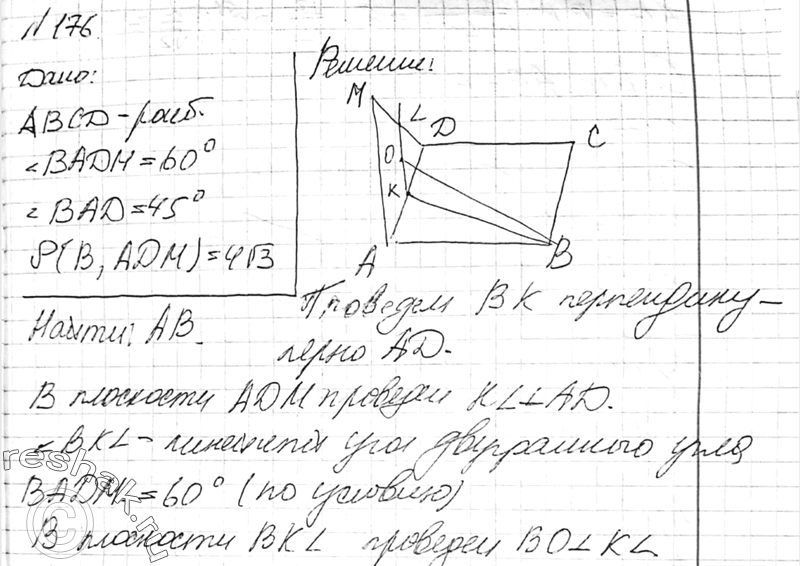 N 176.
Дано:
ABCD - ромб.
∠BADM = 60°
∠BAD = 45°
ρ(B, ADM) = 4√3
Найти: AB.
Решение:
M
L
D
C
O
K
A
B
Проведем BK перпендику-
лярно AD.
В плоскости ADM проведем KL⊥AD.
∠BKL - линейный угол двугранного угла
BADM = 60° (по условию)
В плоскости BKL проведем BO⊥KL
reshak.ru